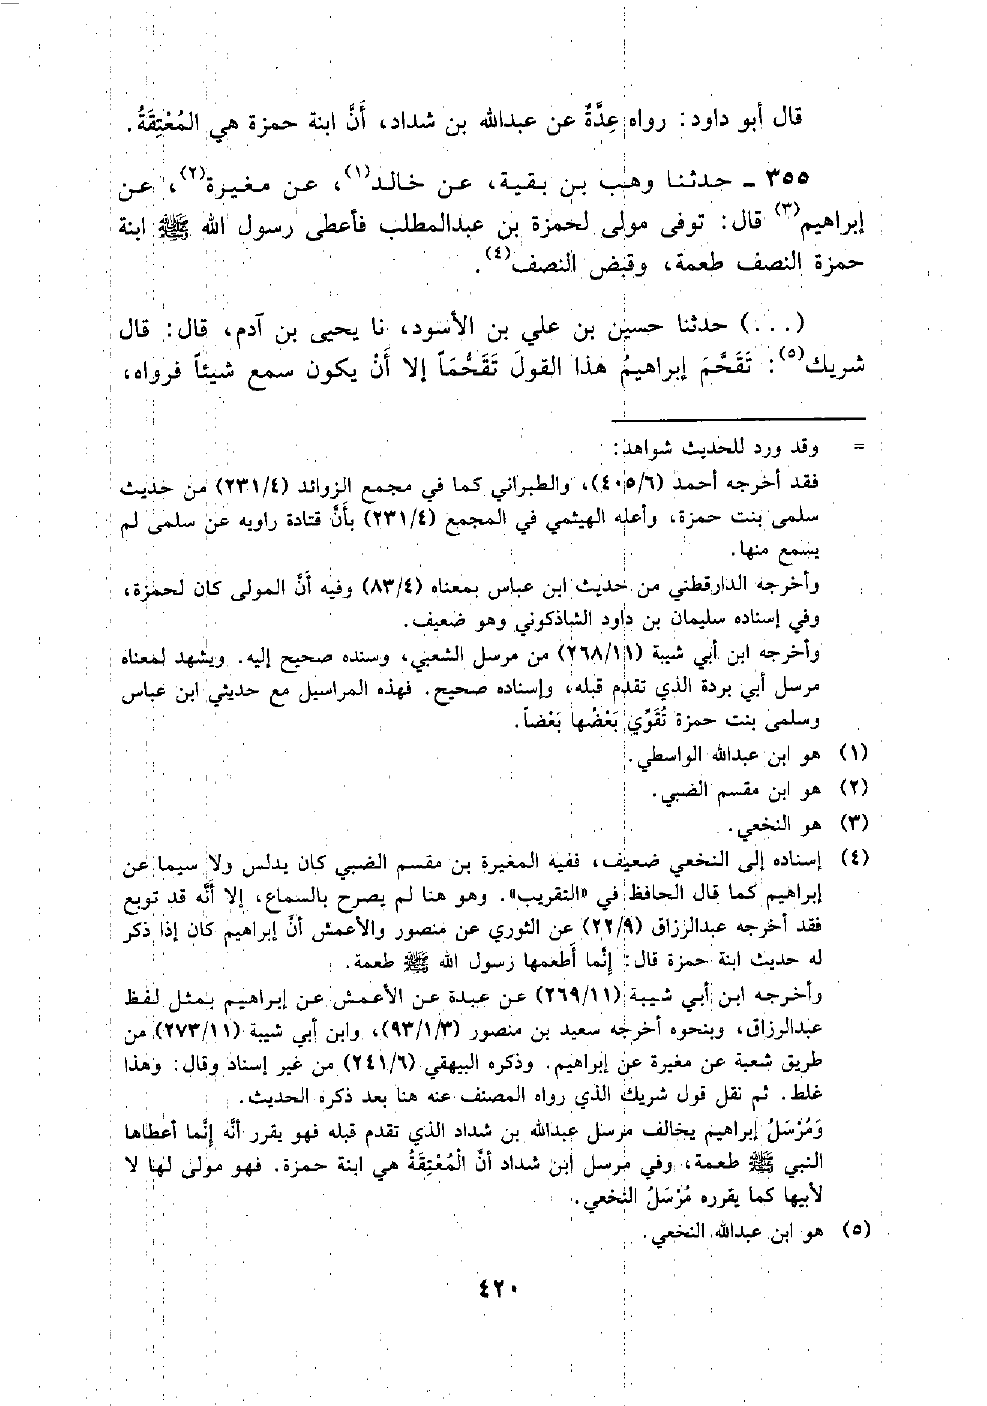 قال أبو داود: رواه عِدَّةٌ عن عبدالله بن شداد، أَنَّ ابنة حمزة هي المُعْتِقَةُ.
٣٥٥ - حدثنا وهب بن بقية، عن خالد(١)، عن مغيرة(٢)، عن
إبراهيم(٣) قال: توفى مولى لحمزة بن عبدالمطلب فأعطى رسول الله ﷺ ابنة
حمزة النصف طعمة، وقبض النصف(٤).
(...) حدثنا حسين بن علي بن الأسود، نا يحيى بن آدم، قال: قال
شريك(٥): تَقَحَّمَ إبراهيمُ هذا القولَ تَقَحُّمَاً إلا أَنْ يكون سمع شيئاً فرواه،
= وقد ورد للحديث شواهد:
فقد أخرجه أحمد (٤٠٥/٦)، والطبراني كما في مجمع الزوائد (٢٣١/٤) من حديث
سلمى بنت حمزة، وأعله الهيثمي في المجمع (٢٣١/٤) بأَنَّ قتادة راويه عن سلمى لم
يسمع منها.
وأخرجه الدارقطني من حديث ابن عباس بمعناه (٨٣/٤) وفيه أَنَّ المولى كان لحمزة،
وفي إسناده سليمان بن داود الشاذكوني وهو ضعيف.
وأخرجه ابن أبي شيبة (٢٦٨/١١) من مرسل الشعبي، وسنده صحيح إليه. ويشهد لمعناه
مرسل أبي بردة الذي تقدم قبله، وإسناده صحيح. فهذه المراسيل مع حديثي ابن عباس
وسلمى بنت حمزة تُقَوِّي بَعْضُها بَعْضاً.
(١) هو ابن عبدالله الواسطي.
(٢) هو ابن مقسم الضبي.
(٣) هو النخعي.
(٤) إسناده إلى النخعي ضعيف، ففيه المغيرة بن مقسم الضبي كان يدلس ولا سيما عن
إبراهيم كما قال الحافظ في «التقريب». وهو هنا لم يصرح بالسماع، إلا أَنَّه قد توبع
فقد أخرجه عبدالرزاق (٢٢/٩) عن الثوري عن منصور والأعمش أنَّ إبراهيم كان إذا ذكر
له حديث ابنة حمزة قال: إنَّما أَطعمها رسول الله ﷺ طعمة.
وأخرجه ابن أبي شيبة (٢٦٩/١١) عن عبدة عن الأعمش عن إبراهيم بمثل لفظ
عبدالرزاق، وبنحوه أخرجه سعيد بن منصور (٩٣/١/٣)، وابن أبي شيبة (٢٧٣/١١) من
طريق شعبة عن مغيرة عن إبراهيم. وذكره البيهقي (٢٤١/٦) من غير إسناد وقال: وهذا
غلط. ثم نقل قول شريك الذي رواه المصنف عنه هنا بعد ذكره الحديث.
وَمُرْسَلُ إبراهيم يخالف مرسل عبدالله بن شداد الذي تقدم قبله فهو يقرر أنَّه إنَّما أعطاها
النبي ﷺ طعمة، وفي مرسل ابن شداد أَنَّ الْمُعْتِقَةُ هي ابنة حمزة. فهو مولى لها لا
لأبيها كما يقرره مُرْسَلُ النخعي.
(٥) هو ابن عبدالله النخعي.
٤٢٠